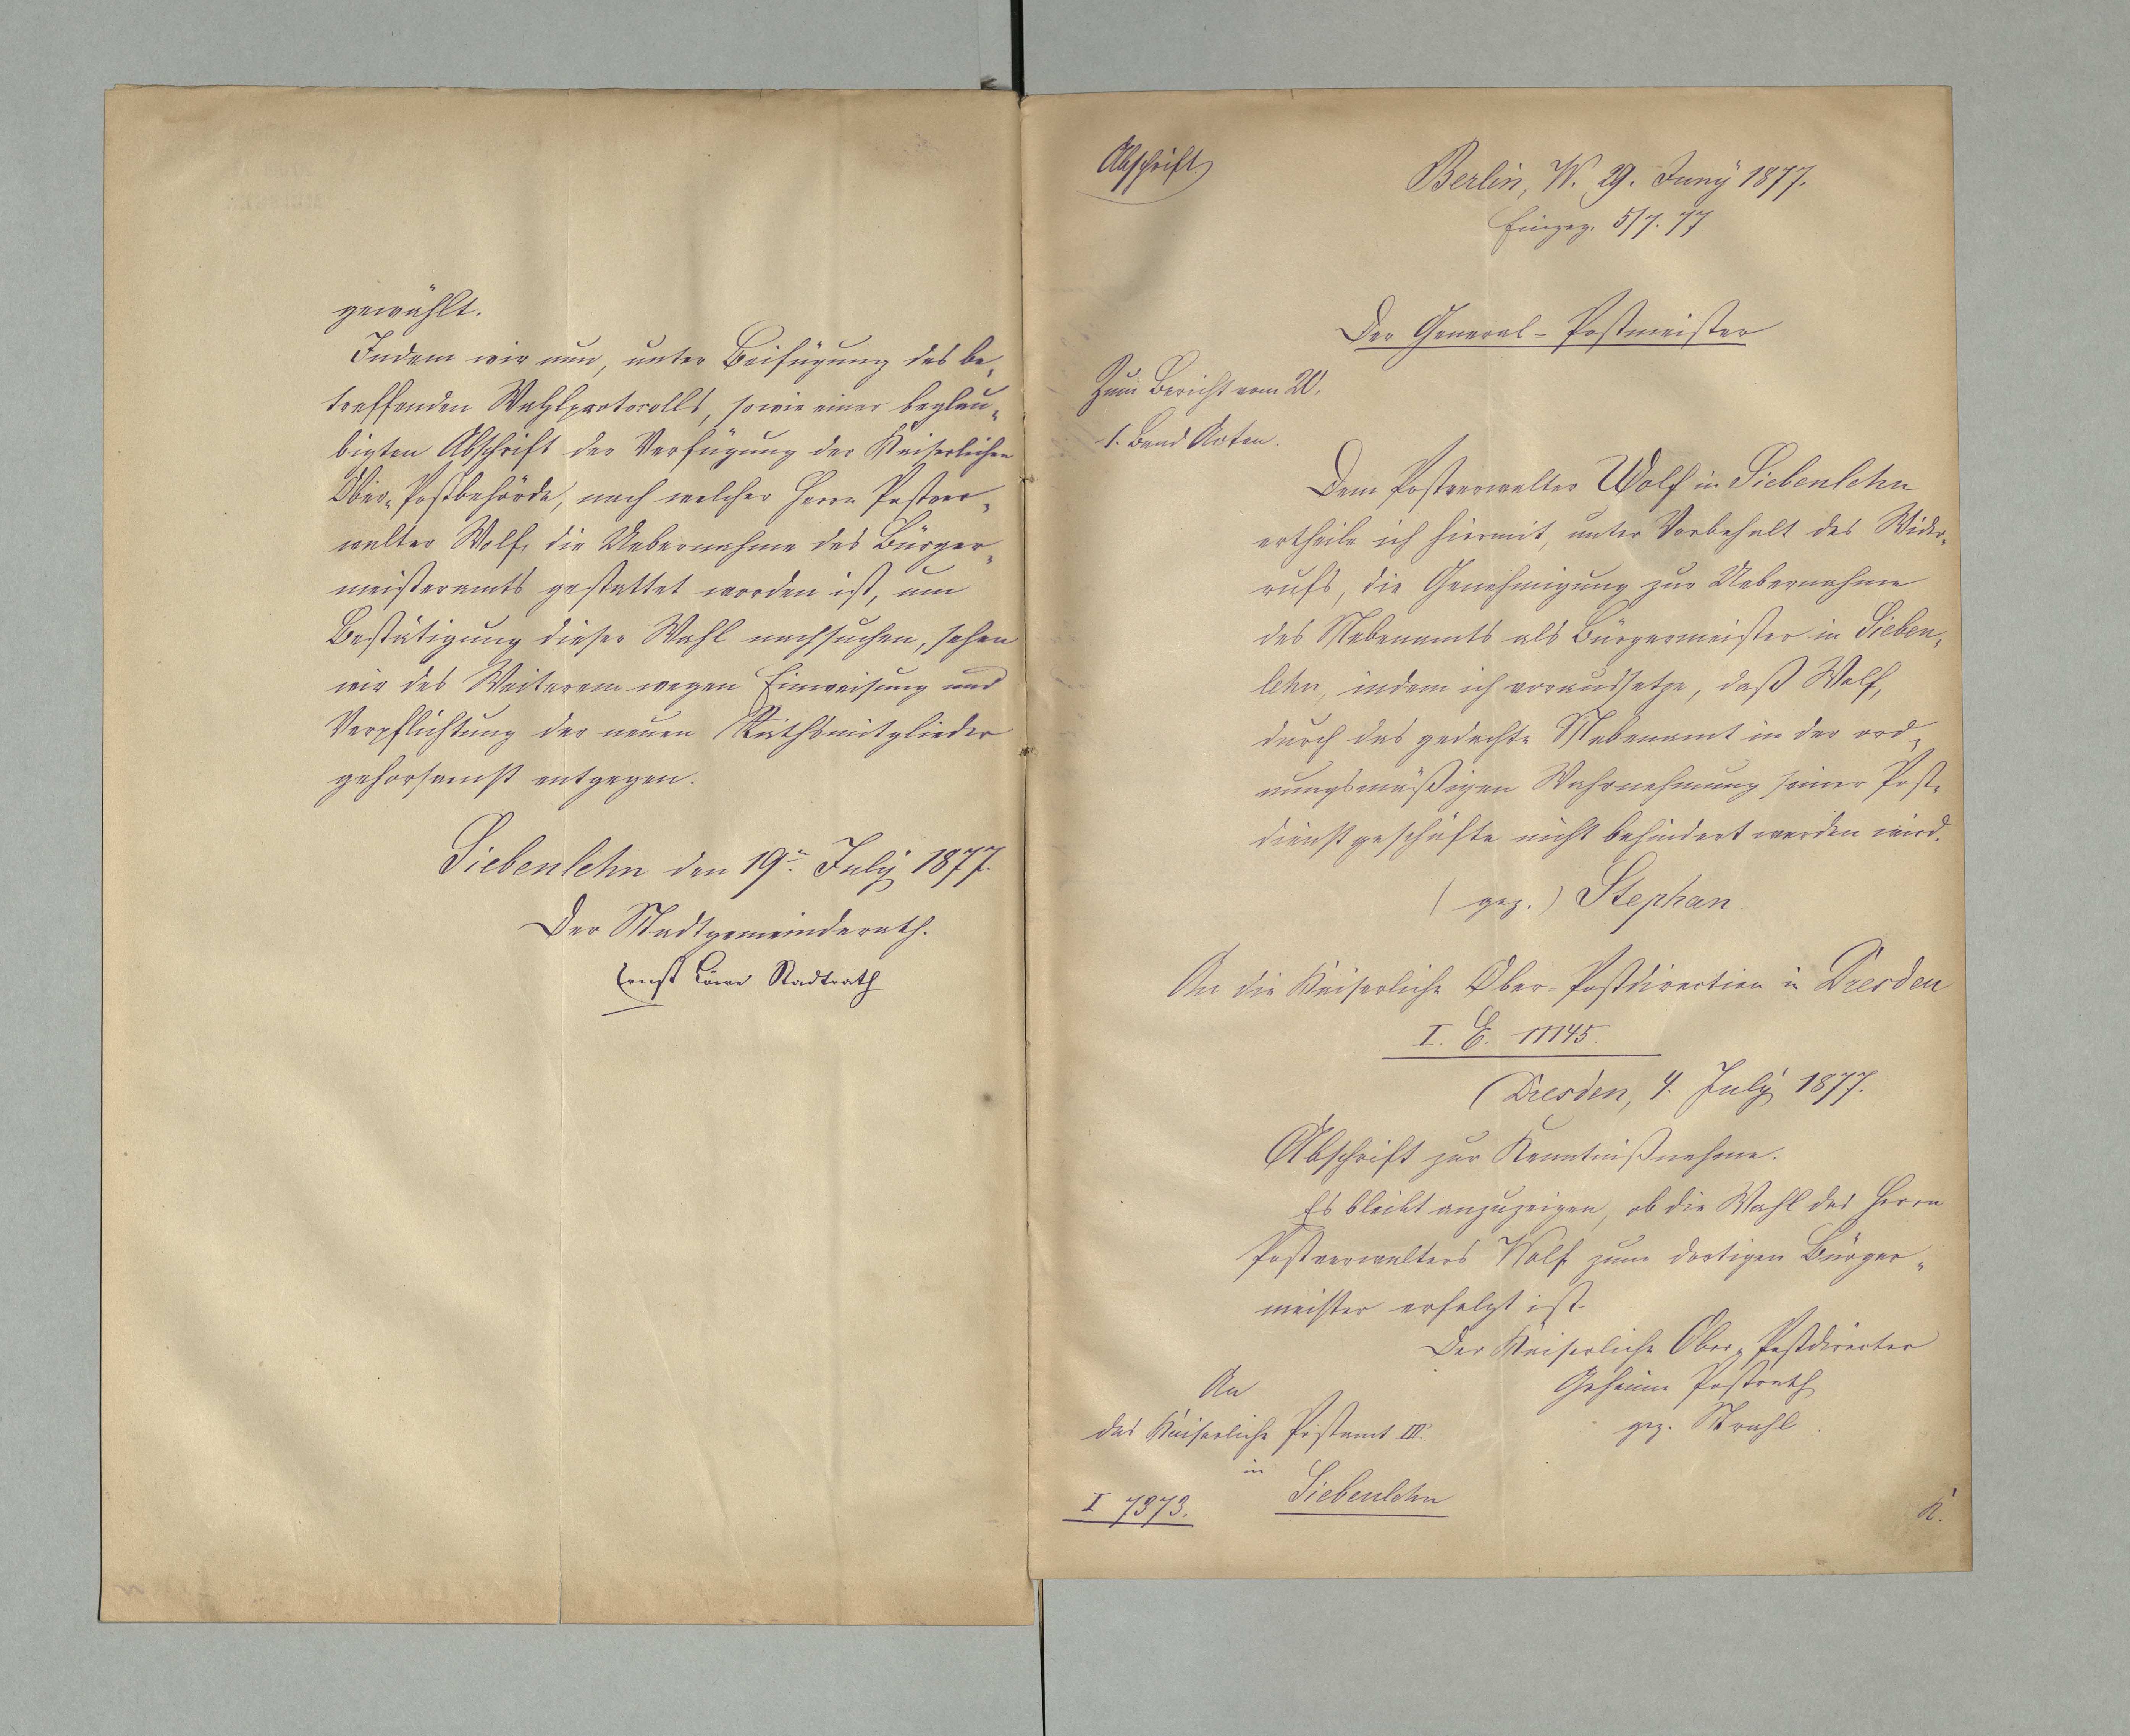 gewählt.
Indem wir nun, unter Beifügung des be-
treffenden Wahlprotocolls, sowie einer beglau-
bigten Abschrift der Verfügung der Kaiserlichen
Ober-Postbehörde, nach welcher Herrn Postver-
walter Wolf, die Uebernahme des Bürger-
meisteramts gestattet worden ist, um
Bestätigung dieser Wahl nachsuchen, sehen
wir des Weiteren wegen Einweisung und
Verpflichtung der neuen Rathsmitglieder
gehorsamst entgegen.
Siebenlehn den 19n. July 1877.
Der Stadtgemeinderath.
Ernst Löwe Stadtrath
Abschrift.
Berlin, W. 29. Juny 1877.
Eingeg. 5/7. 77
Der General-Postmeister
Zum Bericht vom 20.
1. Band Acten.
Dem Postverwalter Wolf in Siebenlehn
ertheile ich hiermit, unter Vorbehalt des Wider-
rufs, die Genehmigung zur Uebernahme
des Nebenamts als Bürgermeister in Sieben-
lehn, indem ich voraussetze, daß Wolf,
durch das gedachte Nebenamt in der ord-
nungsmäßigen Wahrnehmung seiner Post-
dienstgeschäfte nicht behindert werden wird.
(gez.) Stephan
An die Kaiserliche Ober-Postdirection in Dresden
I. E. 11145.
Dresden, 4. July 1877.
Abschrift zur Kenntnißnahme.
Es bleibt anzuzeigen, ob die Wahl des Herrn
Postverwalters Wolf zum dortigen Bürger-
meister erfolgt ist.
Der Kaiserliche Ober-Postdirector
Geheime Postrath
gez. Strahl.
An
das Kaiserliche Postamt III.
in
Siebenlehn
I 7373.